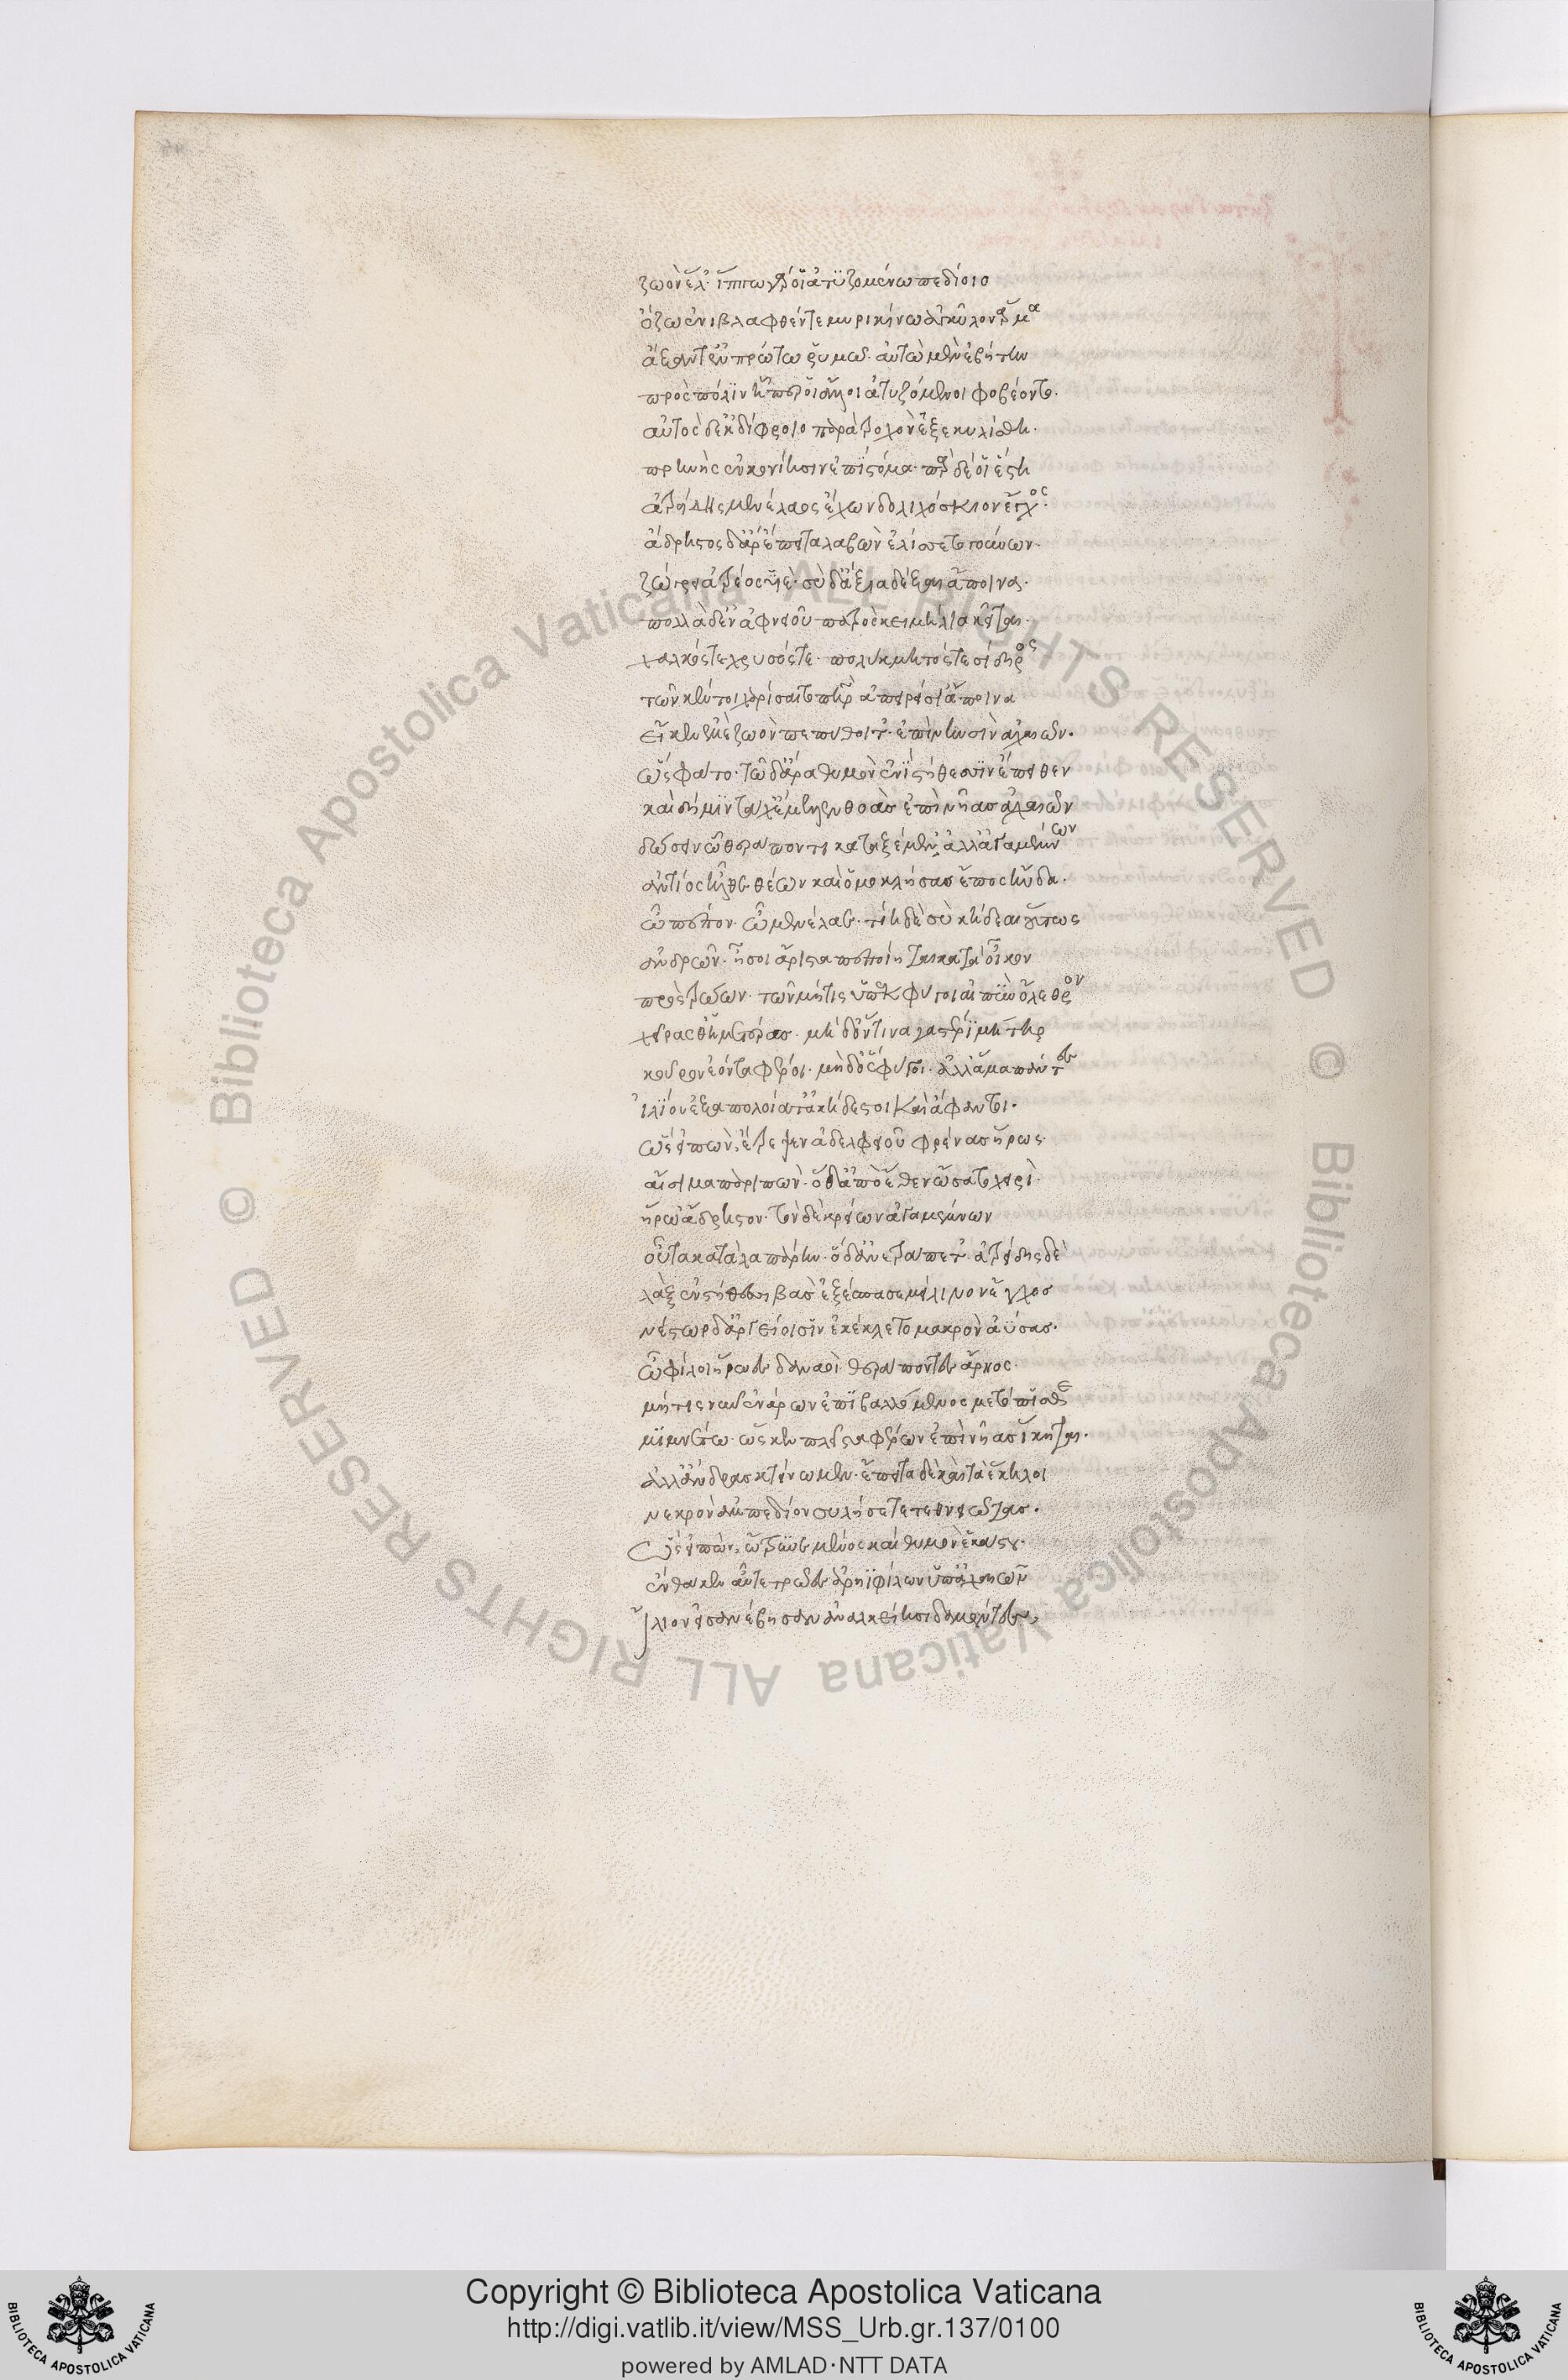 ζωὸν ἕλ'· ἵππω γάρ οἱ ἀτυζομένω πεδίοιο
ὄζω ἐνὶ βλαφθέντε μυρικίνω ἀγκύλον ἅρμα
ἄξαντ' ἐν πρώτω ῥυμῶ· αὐτὼ μὲν ἐβήτην
πρὸς πόλιν ᾗ περ οἱ ἄλλοι ἀτυζόμενοι φοβέοντο·
αὐτὸς δ' ἐκ δίφροιο παρὰ τροχὸν ἐξεκυλίσθη·
πρηνὴς ἐν κονίησιν ἐπὶ στόμα· πὰρ δέ οἱ ἔστη
ἀτρείδης μενέλαος ἔχων δολιχόσκιον ἔγχος·
ἄδρηστος δ' ἄρ' ἔπειτα λαβὼν ἐλίσσετο γούνων·
ζώγρει ἀτρέος υἱέ· σὺ δ' ἄξια δέξαι ἄποινα·
πολλὰ δ' ἐν ἀφνειοῦ πατρὸς κειμήλια κεῖται·
χαλκός τε χρυσός τε· πολύκμητός τε σίδηρος
τῶν κέν τοι χαρίσαιτο πατὴρ ἀπερείσι' ἄποινα
εἴ κεν ἐμὲ ζωὸν πεπύθοιτ' ἐπὶ νηυσὶν ἀχαιῶν·
ὣς φάτο· τῶ δ' ἄρα θυμὸν ἐνὶ στήθεσσιν ἔπειθεν
καὶ δή μιν τάχ' ἔμελλε θοὰς ἐπὶ νῆας ἀχαιῶν
δώσειν ὧ θεράποντι καταξέμεν· ἀλλ' ἀγαμέμνων
ἀντίος ἦλθε θέων καὶ ὁμοκλήσας ἔπος ηὔδα·
ὦ πέπον· ὦ μενέλαε· τίη δὲ σὺ κήδεαι οὕτως
ἀνδρῶν· ἦ σοὶ ἄριστα πεποίηται κατὰ οἶκον
πρὸς τρώων· τῶν μήτις ὑπεκφύγοι αἰπὺν ὄλεθρον
χεῖρας θ' ἡμετέρας· μηδ' ὅντινα γαστέρι μήτηρ
κοῦρον ἐόντα φέροι· μηδ' ὃς φύγοι· ἀλλ' ἅμα πάντες
ἰλίου ἐξαπολοίατ' ἀκήδεστοι καὶ ἄφαντοι·
ὣς εἰπὼν, ἔτρεψεν ἀδελφειοῦ φρένας ἥρως·
αἴσιμα παρειπών· ὁ δ' ἀπὸ ἕθεν ὤσατο χειρὶ
ἥρω' ἄδρηστον· τὸν δὲ κρείων ἀγαμέμνων
οὖτα κατὰ λαπάρην· ὁ δ' ἀνετράπετ'· ἀτρείδης δὲ
λὰξ ἐν στήθεσι βὰς ἐξέσπασε μείλινον ἔγχος
νέστωρ δ' ἀργείοισιν ἐκέκλετο μακρὸν ἀΰσας·
ὦ φίλοι ἥρωες δαναοὶ θεράποντες ἄρηος·
μήτις νῦν ἐνάρων ἐπιβαλλόμενος μετόπισθε
μιμνέτω· ὥς κεν πλεῖστα φέρων ἐπὶ νῆας ἵκηται·
ἀλλ' ἄνδρας κτείνωμεν· ἔπειτα δὲ καὶ τὰ ἕκηλοι
νεκροὺς ἂμ πεδίον συλήσετε τεθνειῶτας·
ὣς εἰπὼν, ὤτρυνε μένος καὶ θυμὸν ἑκάστου·
ἔνθα κεν αὖτε τρῶες ἀρηϊφίλων ὑπ' ἀχαιῶν
ἴλιον εἰσανέβησαν ἀναλκείησι δαμέντες
Copyright © Biblioteca Apostolica Vaticana
http://digi.vatlib.it/view/MSS_Urb.gr.137/0100
powered by AMLAD·NTT DATA